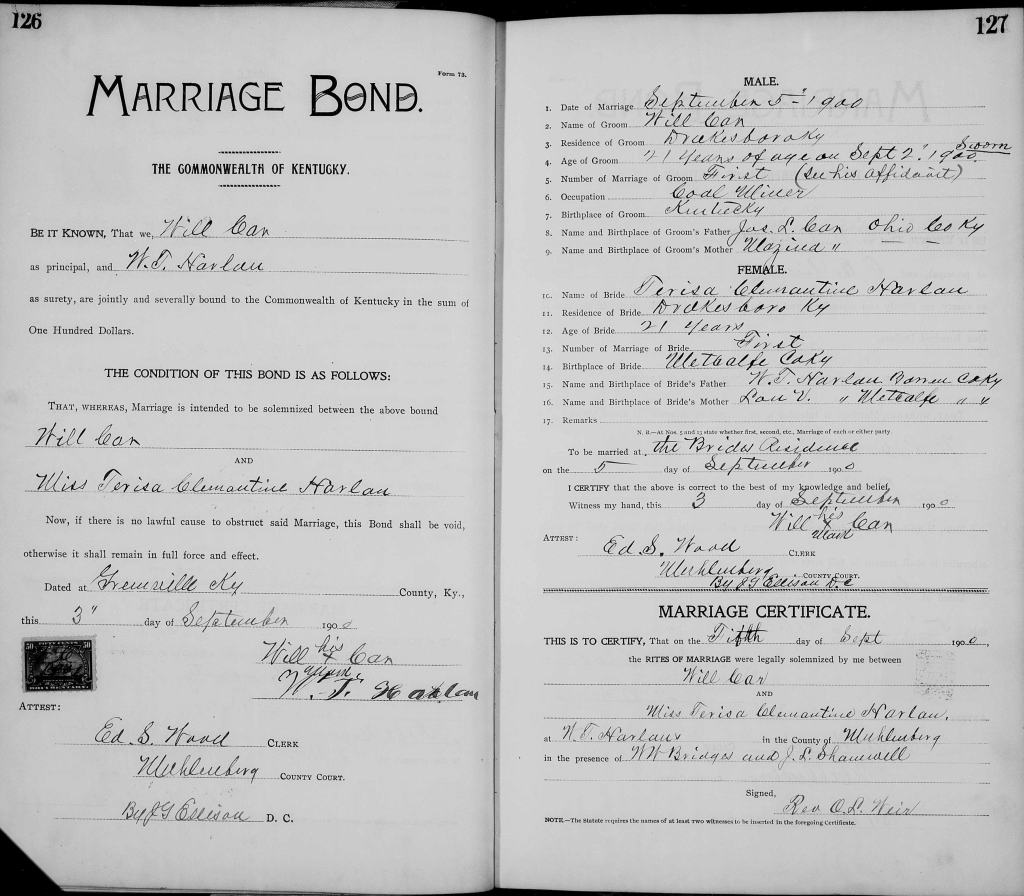 126
Form 73.
MARRIAGE BOND.
THE COMMONWEALTH OF KENTUCKY.
BE IT KNOWN, That we, Will Car
as principal, and W. T. Harlan
as surety, are jointly and severally bound to the Commonwealth of Kentucky in the sum of
One Hundred Dollars.
THE CONDITION OF THIS BOND IS AS FOLLOWS:
THAT, WHEREAS, Marriage is intended to be solemnized between the above bound
Will Car
AND
Miss Terisa Clemantine Harlan
Now, if there is no lawful cause to obstruct said Marriage, this Bond shall be void,
otherwise it shall remain in full force and effect.
Dated at Greenville Ky County, Ky.,
this 3" day of September 1900
his
Will x Car
mark
W. T. Harlan
50
50
DOCUMENTARY
ATTEST:
Ed. S. Wood CLERK
Muhlenberg COUNTY COURT.
By JG Ellison D. C.
127
MALE.
1. Date of Marriage September 5" 1900
2. Name of Groom Will Car
3. Residence of Groom Drakesboro Ky
4. Age of Groom 21 years of age on Sept 2" 1900. Sworn
5. Number of Marriage of Groom First (See his Affidavit)
6. Occupation Coal Miner
7. Birthplace of Groom Kentucky
8. Name and Birthplace of Groom's Father Jas. L. Car Ohio Co Ky
9. Name and Birthplace of Groom's Mother "
FEMALE.
10. Name of Bride Terisa Clemantine Harlan
11. Residence of Bride Drakesboro Ky
12. Age of Bride 21 years
13. Number of Marriage of Bride First
14. Birthplace of Bride Metcalfe Co Ky
15. Name and Birthplace of Bride's Father W. T. Harlan Barren Co Ky
16. Name and Birthplace of Bride's Mother Lou V. " Metcalfe " "
17. Remarks
N. B.—At Nos. 5 and 13 state whether first, second, etc., Marriage of each or either party.
To be married at the Brides Residence
on the 5 day of September 1900
I CERTIFY that the above is correct to the best of my knowledge and belief.
Witness my hand, this 3 day of September 1900
his
Will x Car
Mark
ATTEST:
Ed. S. Wood CLERK
Muhlenberg COUNTY COURT.
By JG Ellison D.C
MARRIAGE CERTIFICATE.
THIS IS TO CERTIFY, That on the Fifth day of Sept 1900,
the RITES OF MARRIAGE were legally solemnized by me between
Will Car
AND
Miss Terisa Clemantine Harlan.
at W. T. Harlans in the County of Muhlenberg
in the presence of W W Bridges and J. L. Shamwell
Signed,
Rev O. L. Weir
NOTE.—The Statute requires the names of at least two witnesses to be inserted in the foregoing Certificate.